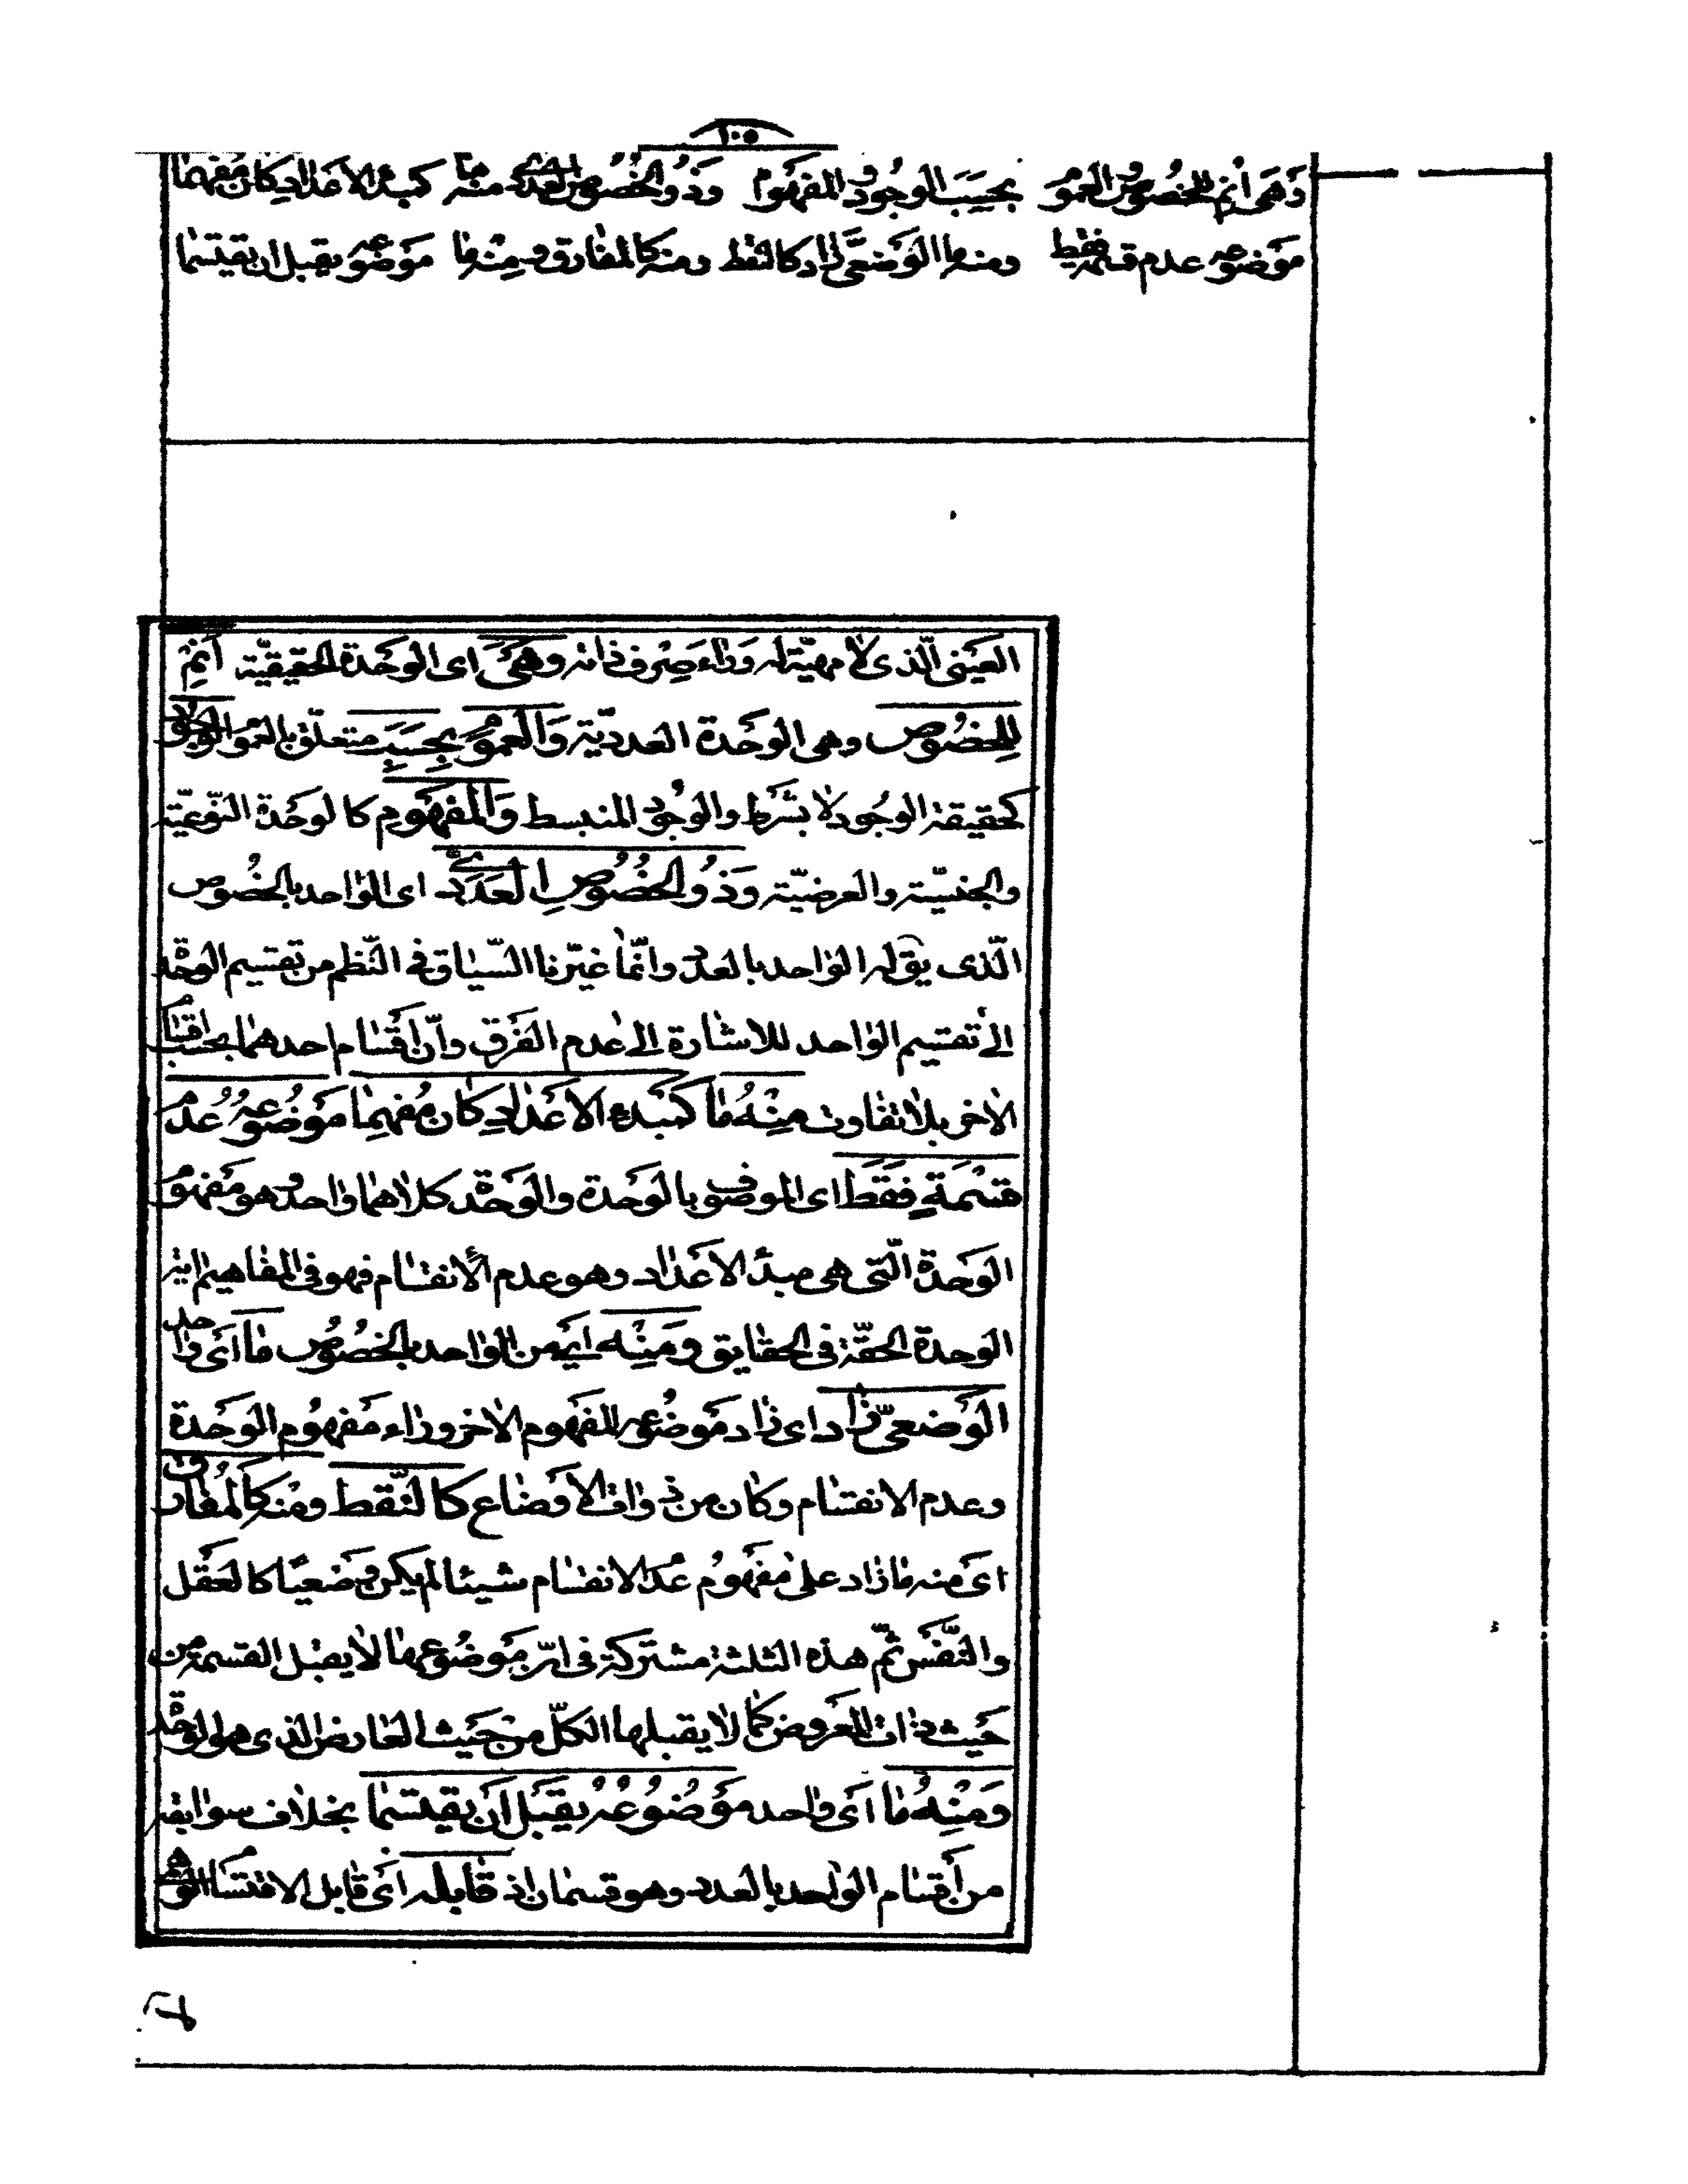 ١٠٥
وهى انم للخصوص العمو بحسب الوجود و المفهوم وذو الخصوص العددى منه ما كمبدء الاعداد كان مفهما
موضوعه عدم قسمة فقط ومنه ما الوضعى زاد كالنقط ومنه كالمفارق ومنه ما موضوعه يقبل ان يقتسما
العينى الّذى لا مهيّة له وراء صرف ذاته وهى اى الوحدة الحقيقيّة انم
للخصوص وهى الوحدة العدديّة والعموم بحسب متعلّق بالعمو الوجود
كحقيقة الوجود لا بشرط والوجود المنبسط والمفهوم كالوحدة النّوعيّة
والجنسيّة والعرضيّة وذو الخصوص العددى اى الواحد بالخصوص
الّذى يق له الواحد بالعدد وانّما غيّرنا السّياق فى النّظم من تقسيم الوحدة
الى تقسيم الواحد للاشارة الى عدم الفرق وانّ اقسام احدهما بحسب اقسام
الاخر بلا تفاوت منه ما كمبدء الاعداد كان مفهما موضوعه عدم
قسمة فقط اى الموصوف بالوحدة والوحدة كلاهما واحد وهو مفهوم
الوحدة الّتى هى مبدء الاعداد وهو عدم الانقسام فهو فى المفاهيم اية
الوحدة الحقّة فى الحقايق ومنه اى من الواحد بالخصوص ما اى واحد
الوضعىّ زاد اى زاد موضوعه المفهوم الاخر وراء مفهوم الوحدة
وعدم الانقسام وكان من ذوات الاوضاع كالنّقط ومنه كالمفارق
اى منه ما زاد على مفهوم عدم الانقسام شيئا لم يكن وضعيّا كالعقل
والنّفس ثمّ هذه الثلثة مشتركة فى انّ موضوعها لا يقبل القسمة من
حيث ذات المعروض كما لا يقبلها الكلّ من حيث العارض الذى هو الوحدة
ومنه ما اى واحد موضوعه يقبل ان يقتسما بخلاف سوابقه
من اقسام الواحد بالعدد وهو قسمان اذ قابله اى قابل الاقتسام